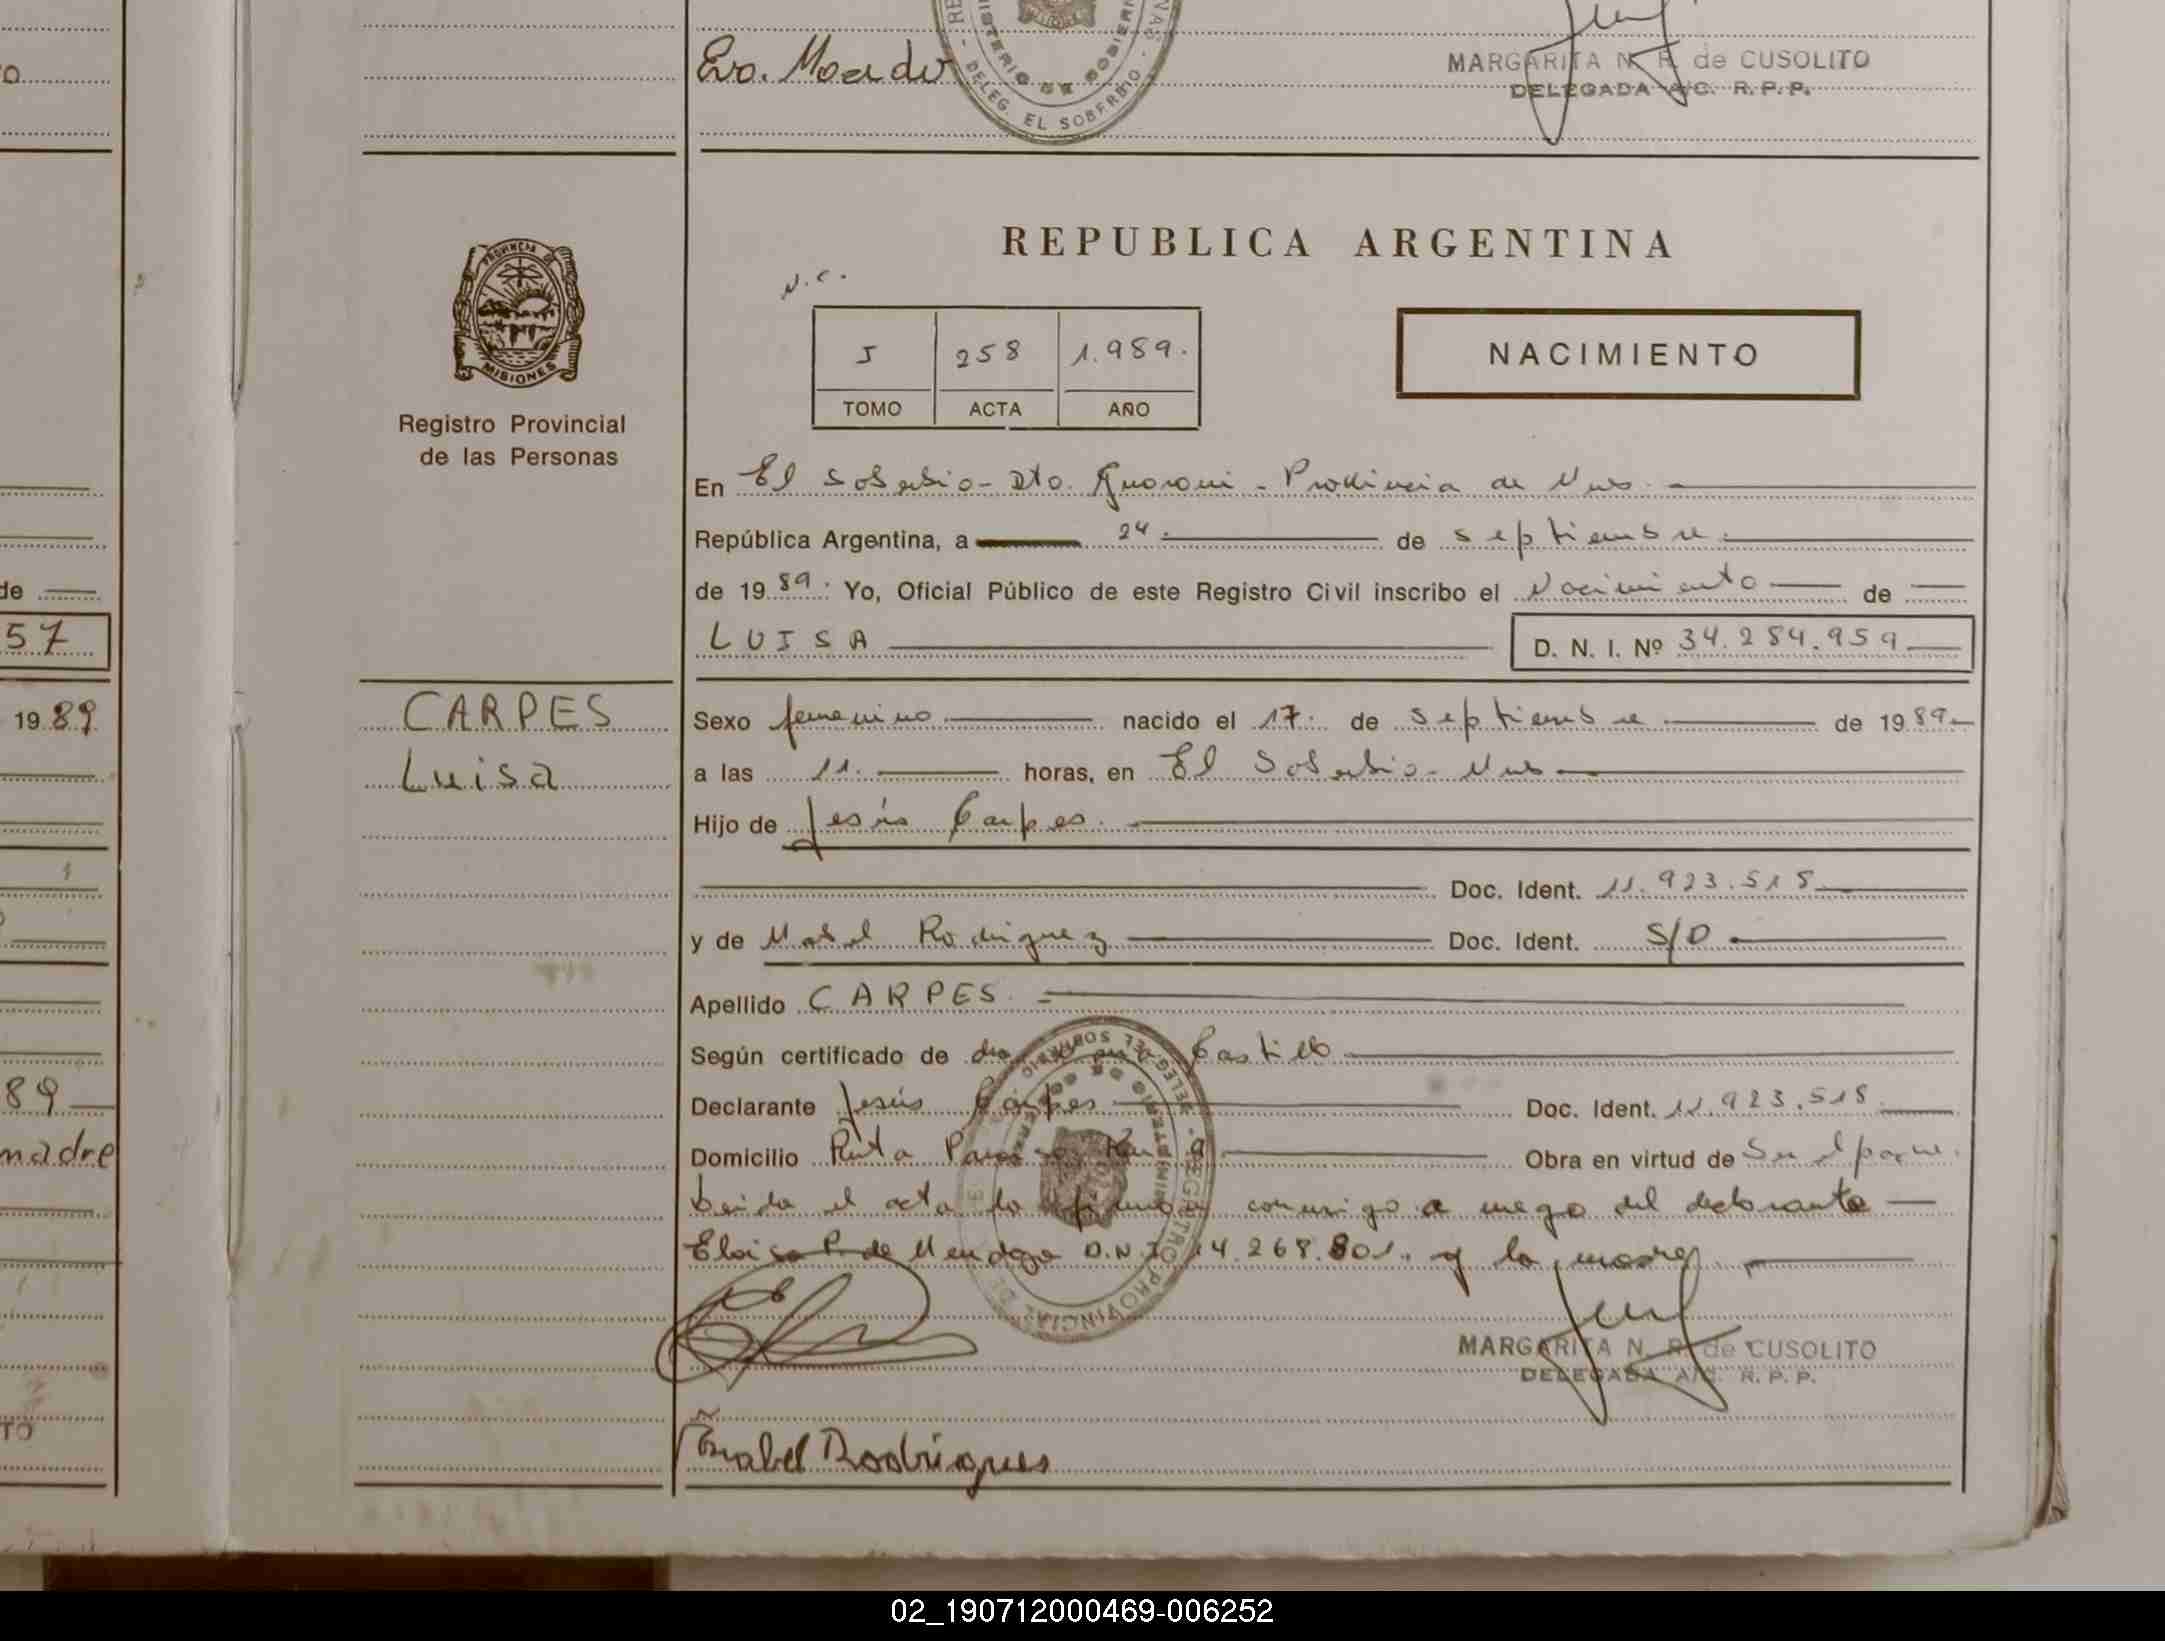 Eva. Moador
MINISTERIO DE GOBIERNO
DELEG. EL SOBERBIO
MARGARITA N. R. de CUSOLITO
DELEGADA A/C. R.P.P.
PROVINCIA DE
MISIONES
Registro Provincial
de las Personas
REPUBLICA ARGENTINA
N.C.
5 258 1.989.
TOMO ACTA AÑO
NACIMIENTO
En El Soberbio - Dto. Guarani - Provincia de Mnes.
República Argentina, a 24. de septiembre
de 1989. Yo, Oficial Público de este Registro Civil inscribo el Nacimiento de
LUISA D. N. I. Nº 34.284.959
57
CARPES
Luisa
1989
Sexo femenino nacido el 17. de septiembre de 1989
a las 11. horas, en El Soberbio - Mnes
Hijo de Jesús Carpes.
Doc. Ident. 11.923.518
y de Mabel Rodriguez Doc. Ident. S/D
Apellido CARPES.
Según certificado de Castillo
Declarante Jesús Carpes Doc. Ident. 11.923.518
Domicilio Ruta Km 9 Obra en virtud de
89
madre
Leida el acta la firma conmigo a ruego del declarante
Eloisa P. de Mendoza D.N.I. 14.268.801. y la madre
MARGARITA N. R. de CUSOLITO
DELEGADA A/C. R. P. P.
Rodrigues
02_190712000469-006252